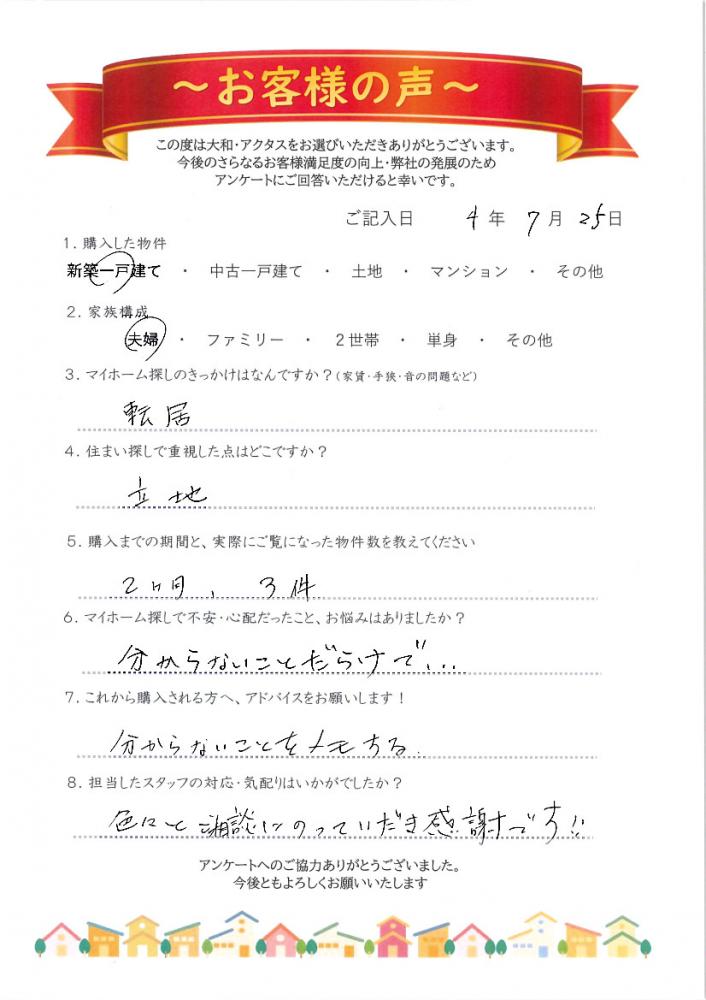 ～お客様の声～
この度は大和・アクタスをお選びいただきありがとうございます。
今後のさらなるお客様満足度の向上・弊社の発展のため
アンケートにご回答いただけると幸いです。
ご記入日 4年 7月 25日
1. 購入した物件
新築一戸建て ・ 中古一戸建て ・ 土地 ・ マンション ・ その他
2. 家族構成
夫婦 ・ ファミリー ・ 2世帯 ・ 単身 ・ その他
3. マイホーム探しのきっかけはなんですか？(家賃・手狭・音の問題など)
転居
4. 住まい探しで重視した点はどこですか？
立地
5. 購入までの期間と、実際にご覧になった物件数を教えてください
2ヶ月、3件
6. マイホーム探しで不安・心配だったこと、お悩みはありましたか？
分からないことだらけで...
7. これから購入される方へ、アドバイスをお願いします！
分からないことをメモする.
8. 担当したスタッフの対応・気配りはいかがでしたか？
色々と ご相談にのっていただき感謝です!!
アンケートへのご協力ありがとうございました。
今後ともよろしくお願いいたします